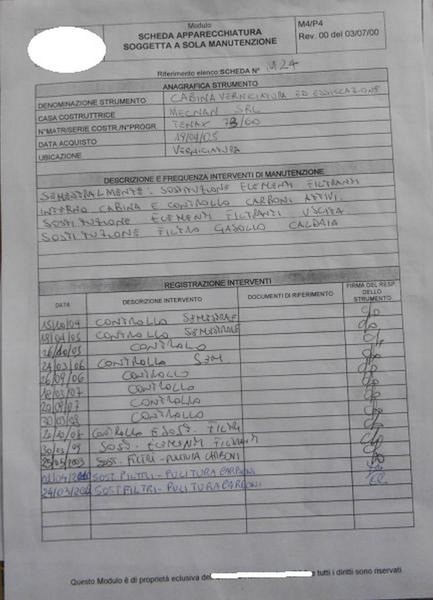 Modulo
SCHEDA APPARECCHIATURA
SOGGETTA A SOLA MANUTENZIONE
M4/P4
Rev. 00 del 03/07/00
Riferimento elenco SCHEDA N° M24
ANAGRAFICA STRUMENTO
DENOMINAZIONE STRUMENTO CABINA VERNICIATURA ED ESSICCAZIONE
CASA COSTRUTTRICE MECNAN SRL
N°MATR/SERIE COSTR./N°PROGR. TENAX /00
DATA ACQUISTO 19/04/05
UBICAZIONE VERNICIATURA
DESCRIZIONE E FREQUENZA INTERVENTI DI MANUTENZIONE
SEMESTRALMENTE: SOSTITUZIONE ELEMENTI FILTRANTI
INTERNO CABINA E CONTROLLO CARBONI ATTIVI.
SOSTITUZIONE ELEMENTI FILTRANTI USCITA
SOSTITUZIONE FILTRO GASOLIO CALDAIA
REGISTRAZIONE INTERVENTI
DATA DESCRIZIONE INTERVENTO DOCUMENTI DI RIFERIMENTO FIRMA DEL RESP. DELLO STRUMENTO
15/10/04 CONTROLLO SEMESTRALE
18/04/05 CONTROLLO SEMESTRALE
26/10/05 CONTROLLO
24/03/06 CONTROLLO SEM
26/09/06 CONTROLLO
18/03/07 CONTROLLO
20/09/07 CONTROLLO
30/03/08 CONTROLLO
22/10/08 CONTROLLO E SOST. FILTRI
30/03/09 SOST. ELEMENTI FILTRANTI
25/05/2009 SOS. FILTRI - PULITURA CARBONI
SOST. FILTRI - PULITURA CARBONI
SOST FILTRI - PULITURA CARBONI
Questo Modulo è di proprietà eclusiva de e tutti i diritti sono riservati